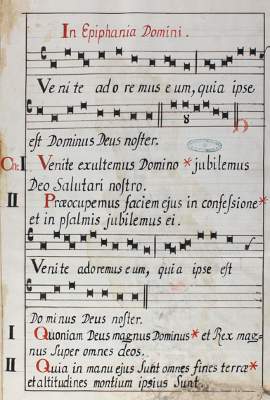 In Epiphania Domini.
Venite adoremus eum, quia ipse
est Dominus Deus noster.
Ch: I Venite exultemus Domino * jubilemus
Deo Salutari nostro.
II Præocupemus faciem ejus in confessione *
et in psalmis jubilemus ei.
Venite adoremus eum, quia ipse est
Dominus Deus noster.
I Quoniam Deus magnus Dominus * et Rex mag-
nus Super omnes deos.
II Quia in manu ejus Sunt omnes fines terræ *
et altitudines montium ipsius Sunt.